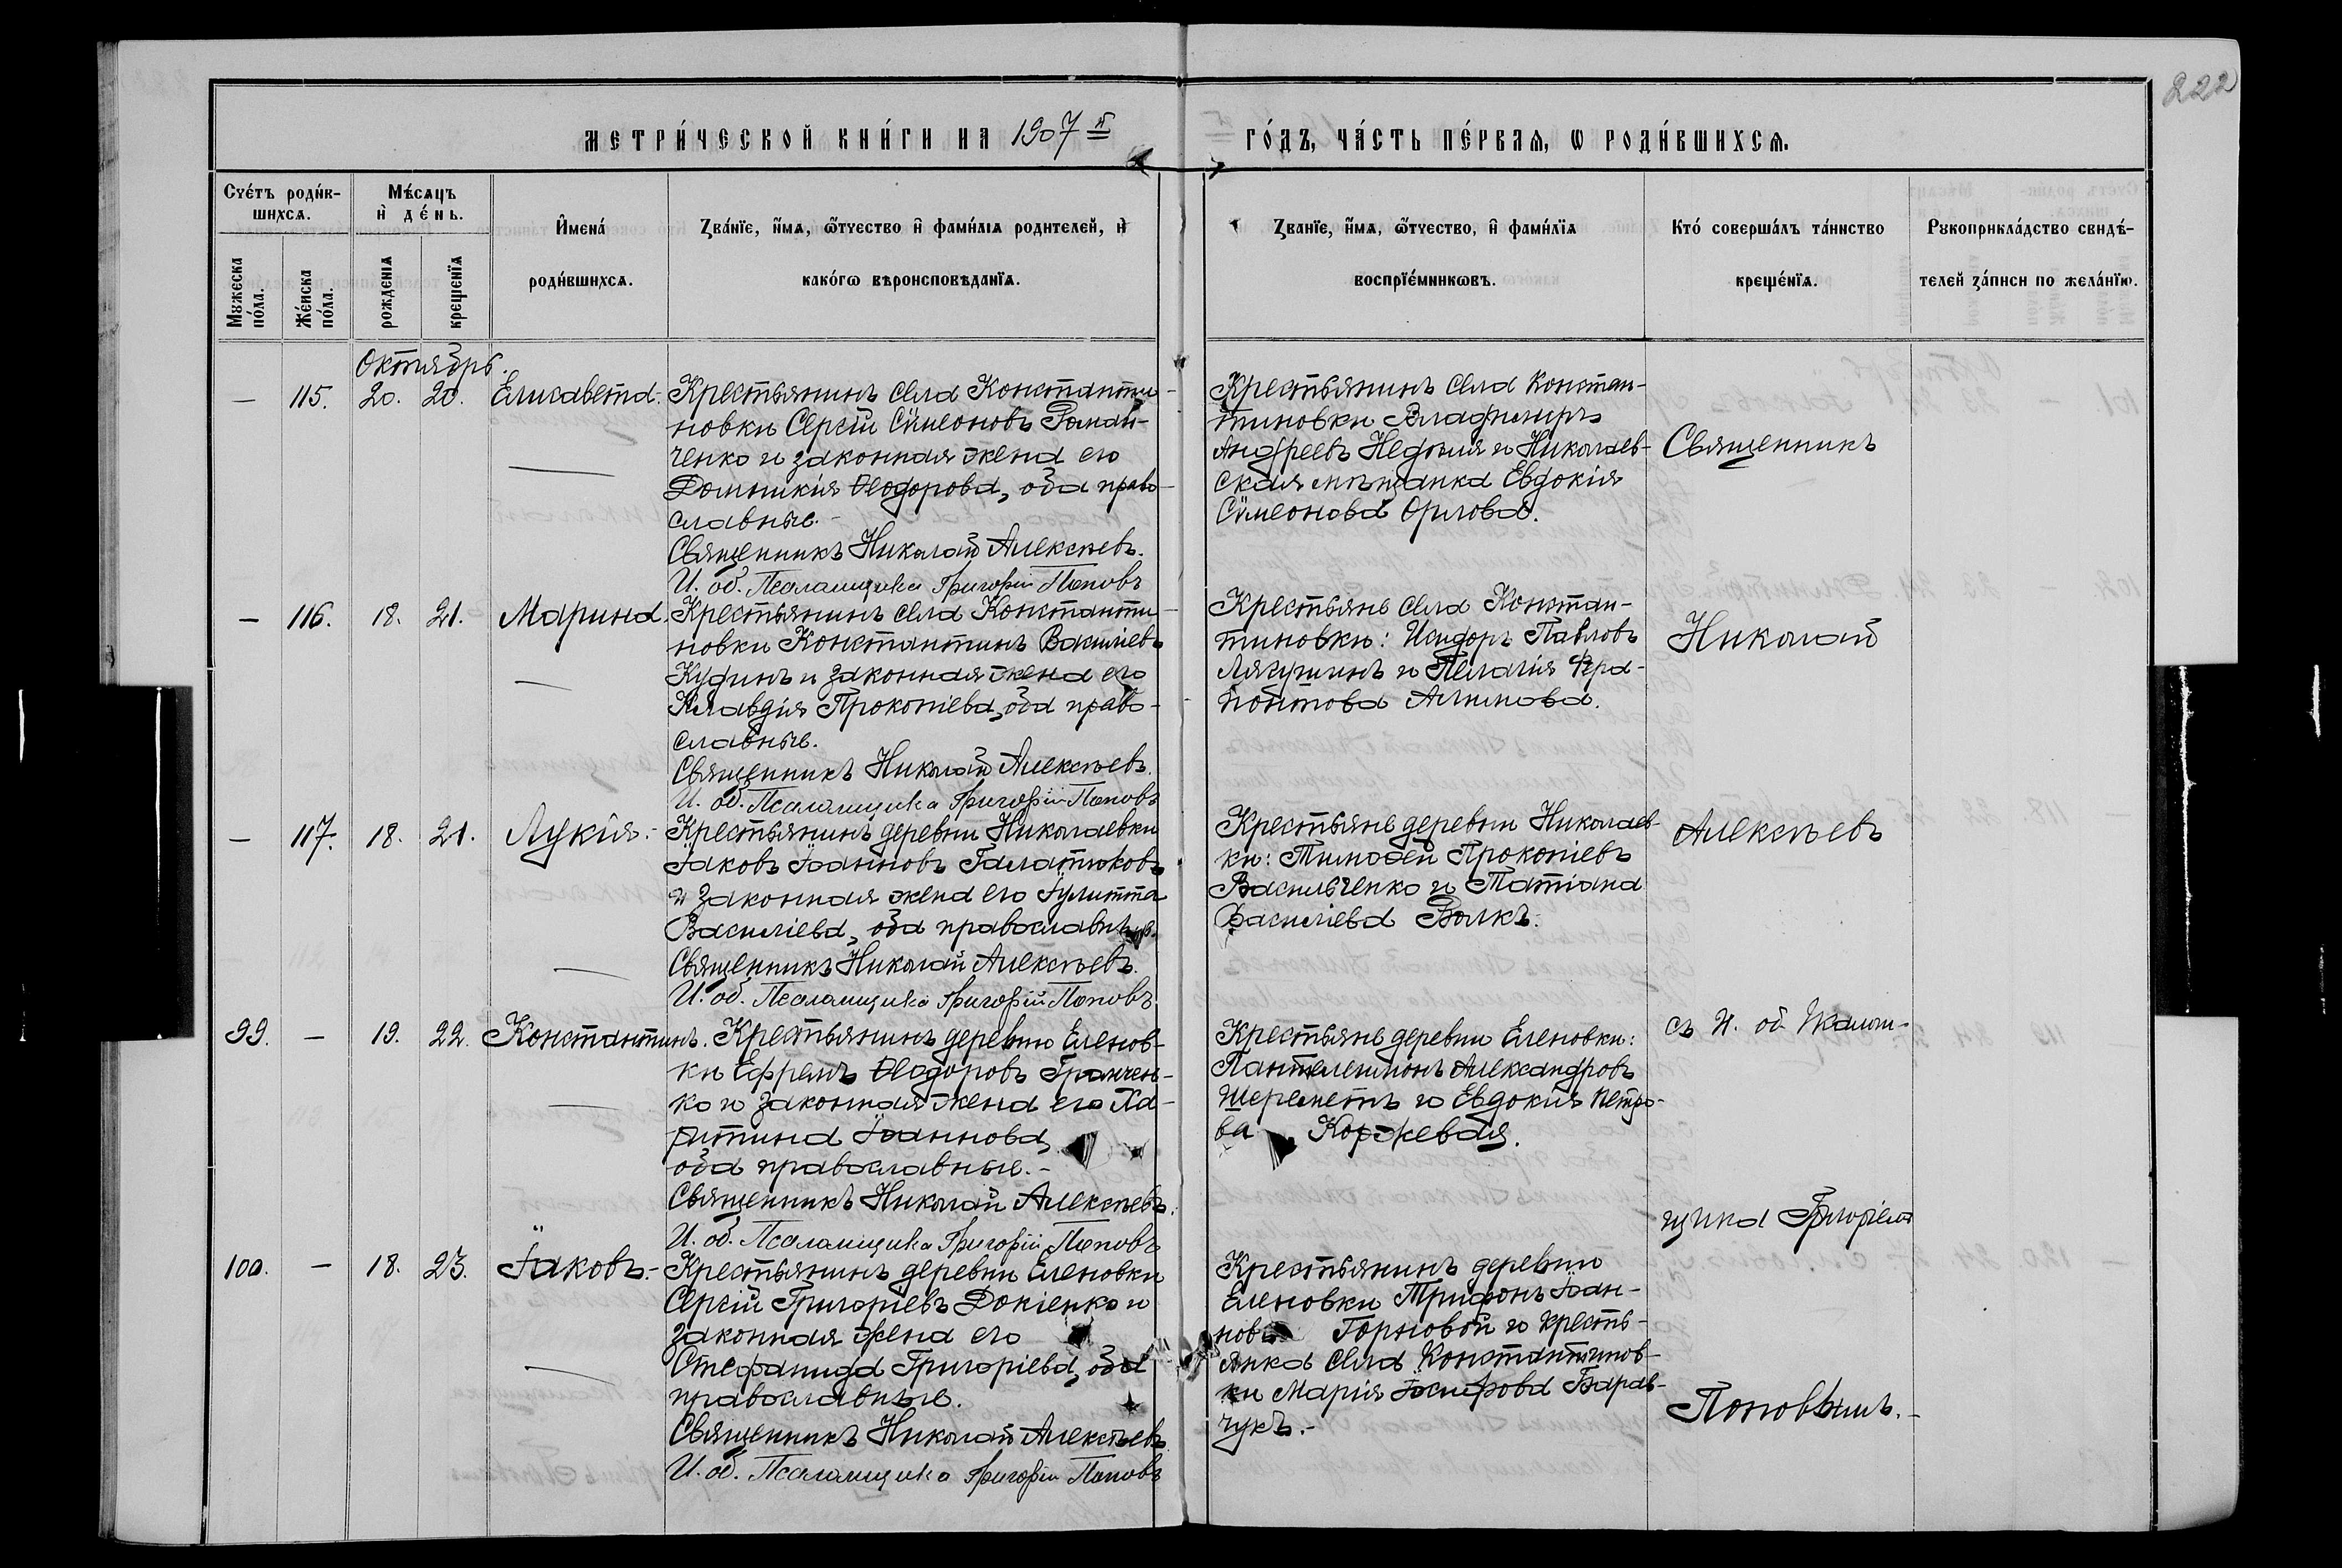 222
МЕТРИ́ЧЕСКОЙ КНИ́ГИ НА 1907 й
ГО́ДЪ, ЧА́СТЬ ПЕ́РВАѦ, Ѡ РОДИ́ВШИХСѦ.
Сче́тъ роди́в-
шихсѧ.
Мѣ́сѧцъ
и҆ де́нь.
Мꙋжеска
по́ла.
Же́нска
по́ла.
рожденіѧ
крещенїѧ
И҆мена́
роди́вшихсѧ.
Зва́нїе, и҆́мѧ, ѻ҆́тчество и҆ фами́лїѧ родителей, и҆
како́гѡ вѣроисповѣ́данїѧ.
Званїе, и҆́мѧ, ѻ҆́тчество, и҆ фами́лїѧ
воспрїе́мникѡвъ.
Кто́ соверша́лъ та́инство
креще́нїѧ.
Рꙋкоприкла́дство свидѣ́-
телей за́писи по жела́нїю.
Октябрь.
— 115. 20. 20. Елисавета. Крестьянинъ села Константи-
новки Сергій Сѵмеоновъ Роман-
ченко и законная жена его
Домникія Ѳеодорова, оба право-
славные.-
Священникъ Николай Алексѣевъ.
И. об. Псаломщика Григорій Поповъ
Крестьянинъ села Констан-
тиновки Владимиръ
Андреевъ Недоля и Николаев-
ская мѣщанка Евдокія
Сѵмеонова Орлова.
Священникъ
— 116. 18. 21. Марина. Крестьянинъ села Константи-
новки Константинъ Василіевъ
Кудинъ и законная жена его
Клавдія Прокопіева, оба право-
славные.
Священникъ Николай Алексѣевъ.
И. об. Псаломщика Григорій Поповъ
Крестьяне села Констан-
тиновки: Исидоръ Павловъ
Лягушинъ и Пелагія Фера-
понтова Алимова.
Николай
— 117. 18. 21. Лукія.- Крестьянинъ деревни Николаевки
Іаковъ Іоанновъ Галатюковъ
и законная жена его Іулитта
Василіева, оба православные.
Священникъ Николай Алексѣевъ.
И. об. Псаломщика Григорій Поповъ
Крестьяне деревни Николаев-
ки: Тимоѳей Прокопіевъ
Васильченко и Татіана
Василіева Волкъ.
Алексѣевъ
99. — 19. 22. Константинъ. Крестьянинъ деревни Еленов-
ки Ефремъ Ѳеодоровъ Гранчен-
ко и законная жена его Ха-
ритина Іоаннова,
оба православные.-
Священникъ Николай Алексѣевъ.
И. об. Псаломщика Григорій Поповъ
Крестьяне деревни Еленовки:
Пантелеимонъ Александровъ
Шереметъ и Евдокія Петро-
ва Коржевая.
съ И. об. Псалом-
щика Григоріемъ
100. — 18. 23. Іаковъ.- Крестьянинъ деревни Еленовки
Сергій Григоріевъ Докіенко и
законная жена его
Стефанида Григоріева, оба
православные.
Священникъ Николай Алексѣевъ
И. об. Псаломщика Григорій Поповъ
Крестьянинъ деревни
Еленовки Трифонъ Іоан-
новъ Горловой и кресть-
янка села Константинов-
ки Марія Іосифова Барав-
чукъ.-
Поповымъ.-